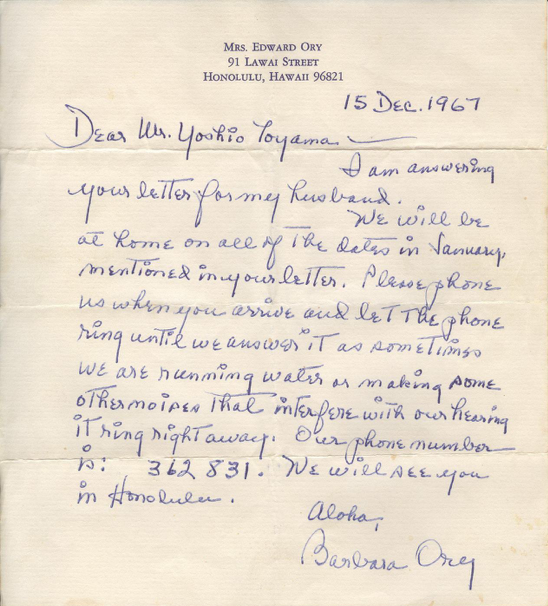 Mrs. Edward Ory
91 Lawai Street
Honolulu, Hawaii 96821
15 Dec. 1967
Dear Mr. Yoshio Toyama —
I am answering
your letter for my husband.
We will be
at home on all of the dates in January,
mentioned in your letter. Please phone
us when you arrive and let the phone
ring until we answer it as sometimes
we are running water or making some
other noises that interfere with our hearing
it ring right away. Our phone number
is: 362 831. We will see you
in Honolulu.
Aloha,
Barbara Ory